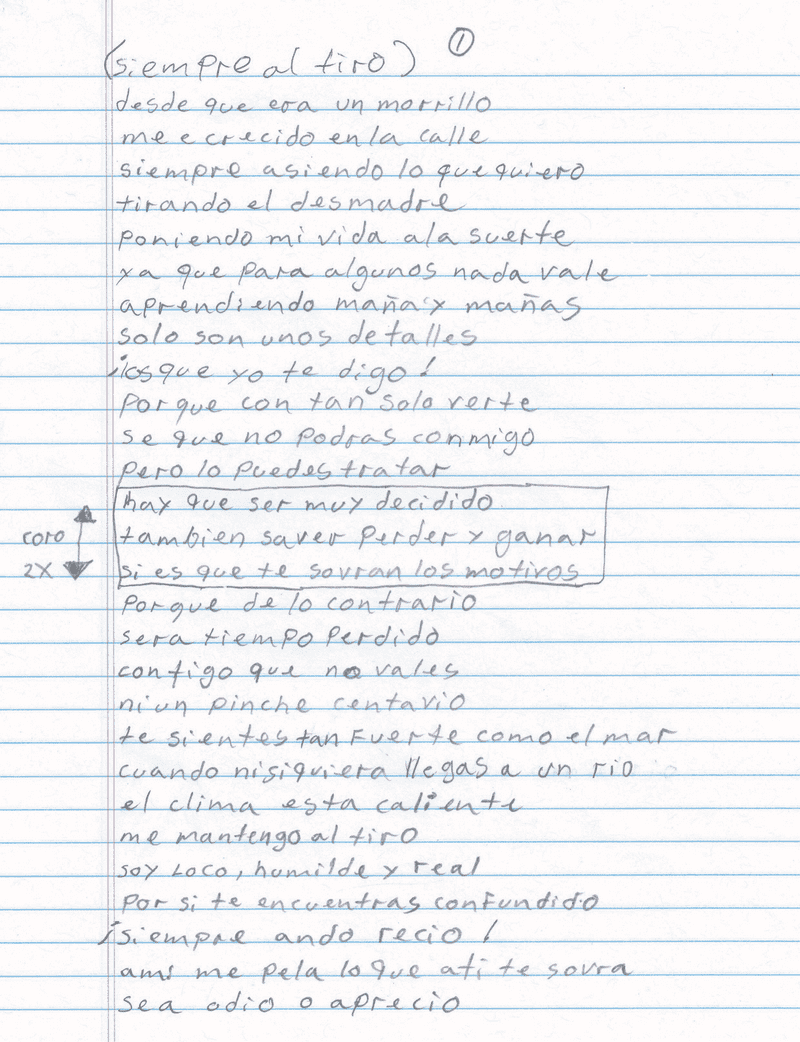 ①
(siempre al tiro)
desde que era un morrillo
me e crecido en la calle
siempre asiendo lo que quiero
tirando el desmadre
poniendo mi vida ala suerte
ya que para algunos nada vale
aprendiendo maña y mañas
solo son unos detalles
¡los que yo te digo!
porque con tan solo verte
se que no podras conmigo
pero lo puedes tratar
hay que ser muy decidido
coro
tambien saver perder y ganar
2X
si es que te sovran los motivos
porque de lo contrario
sera tiempo perdido
contigo que no vales
ni un pinche centavio
te sientes tan fuerte como el mar
cuando nisiquiera llegas a un rio
el clima esta caliente
me mantengo al tiro
soy loco, humilde y real
por si te encuentras confundido
¡siempre ando recio!
ami me pela lo que ati te sovra
sea odio o aprecio